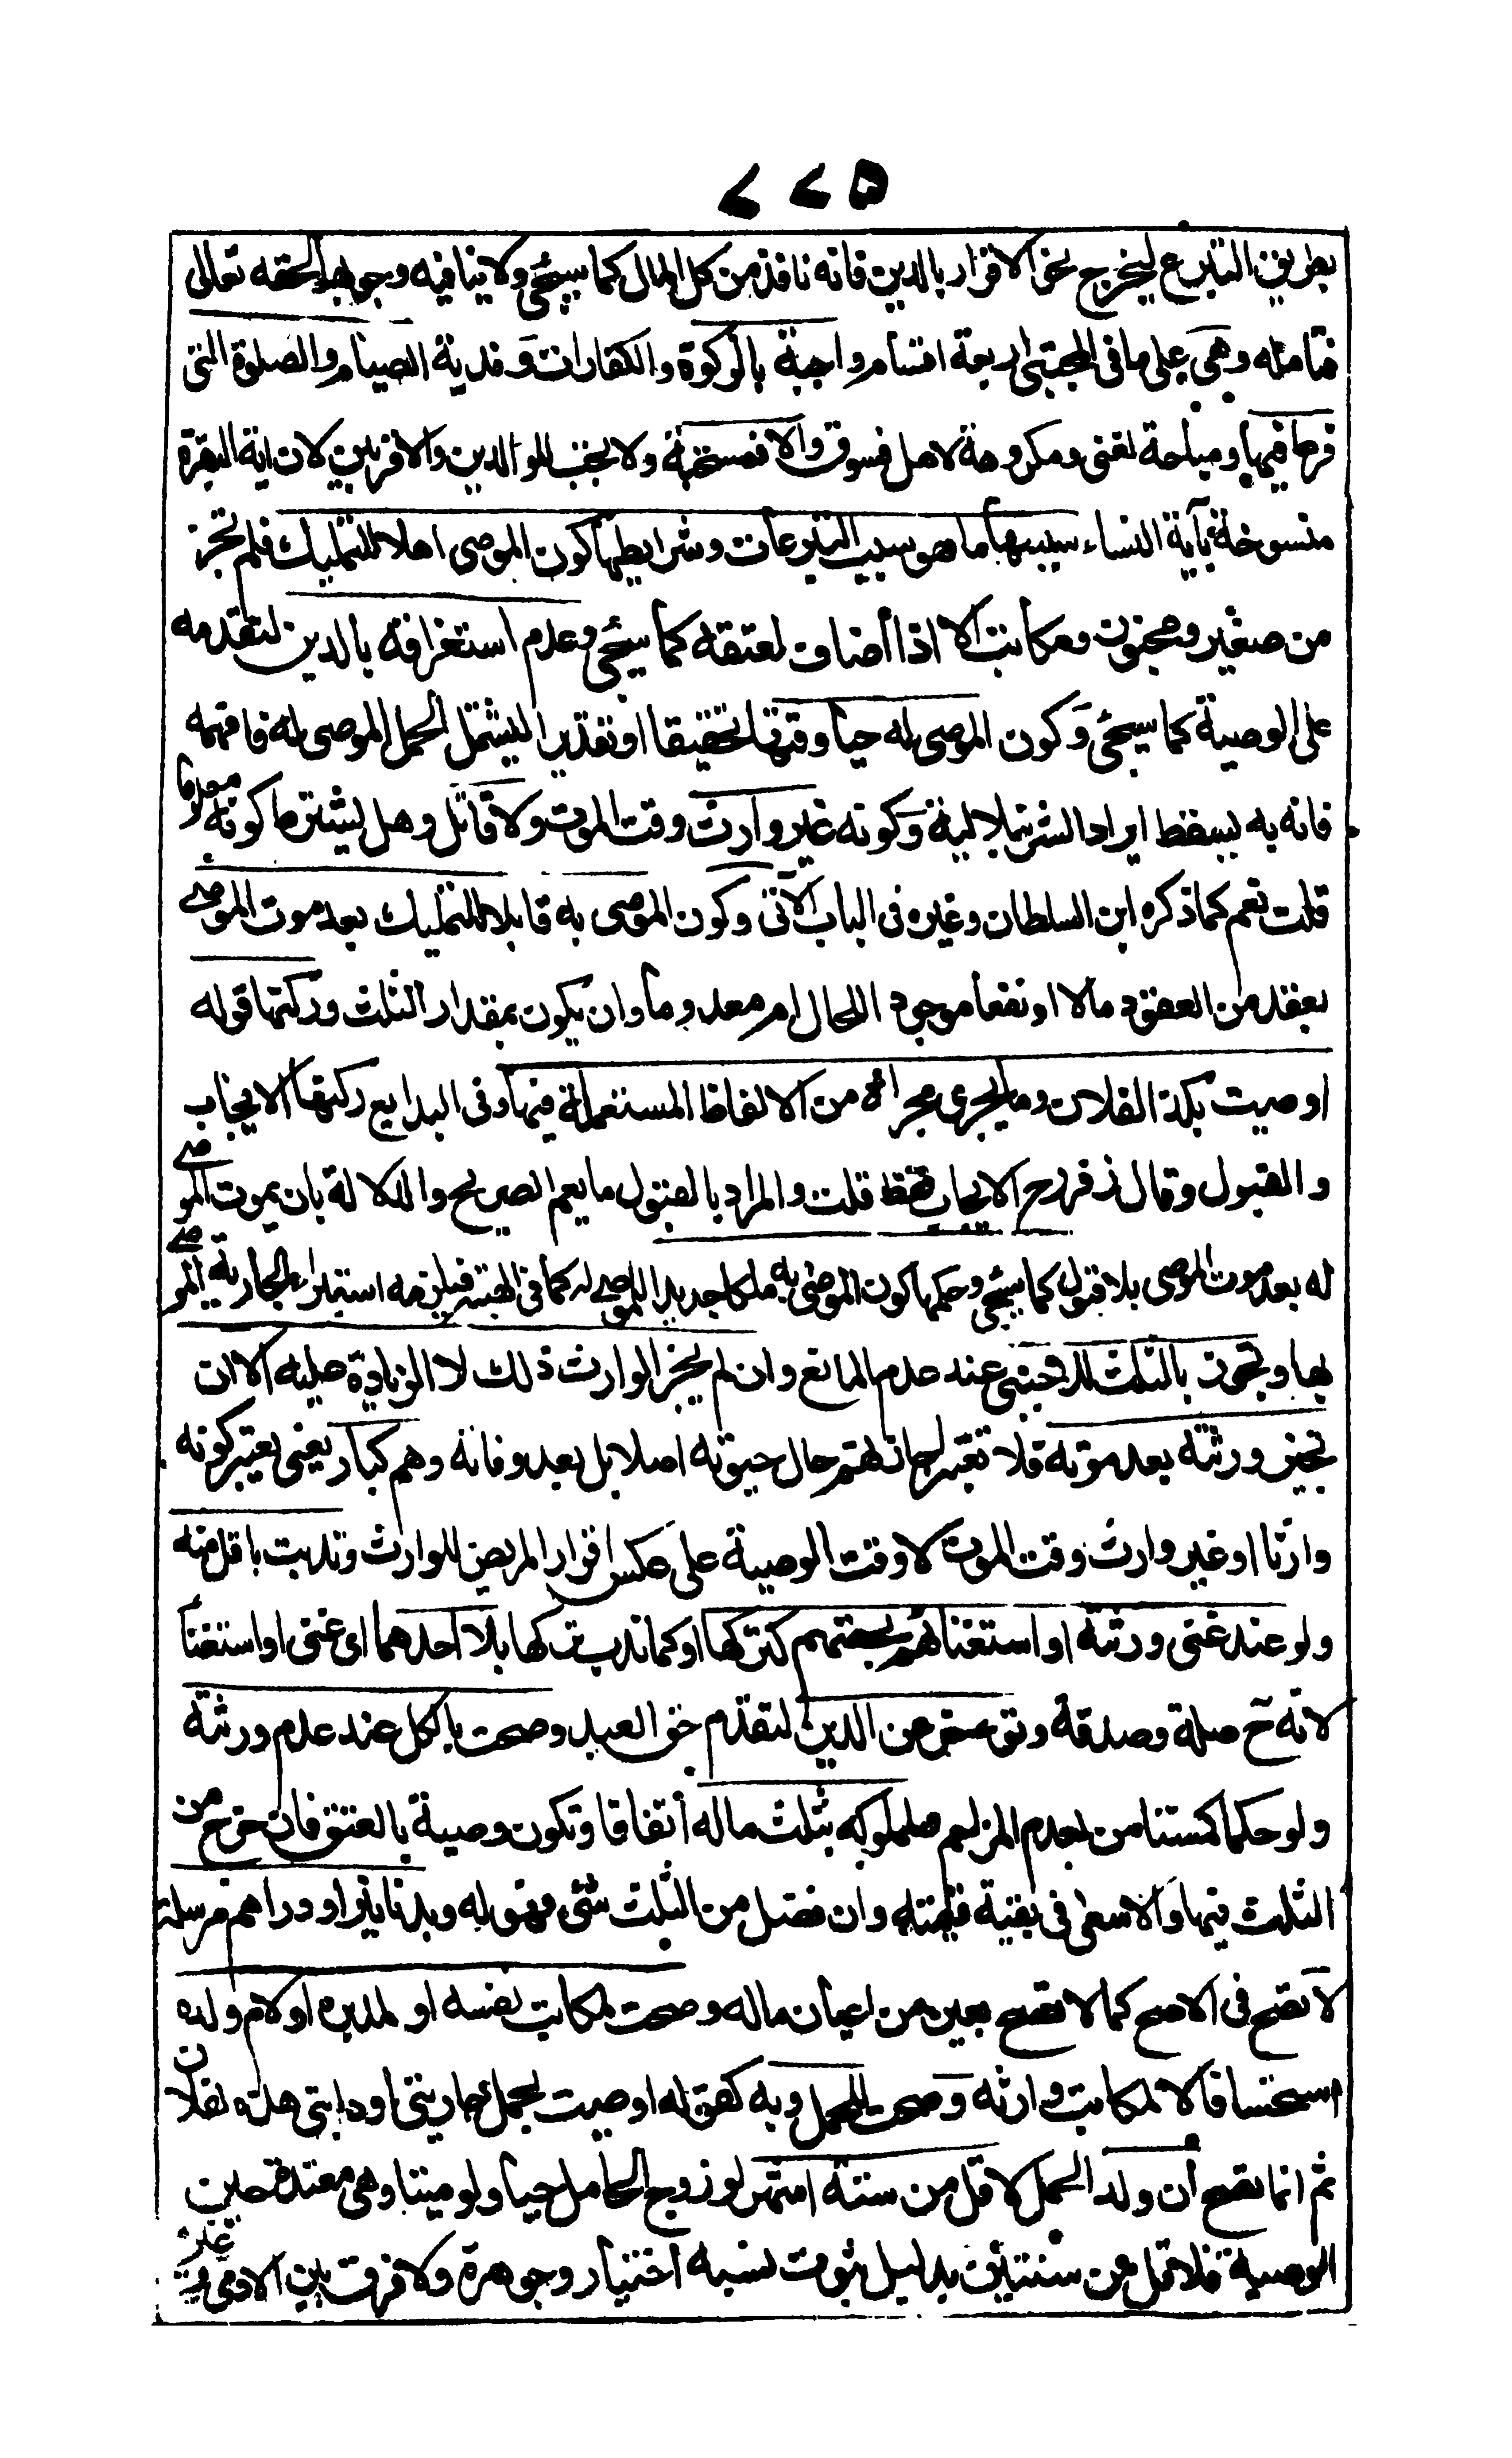 ٧٧٥
بطريق التبرع ليخرج نحو الاقرار بالدين فانه نافذ من كل المال كما سيجئ ولا ينافيه وجوبها لحقه تعالى
فتامله وهي على ما فى المجتبى اربعة اقسام واجبة بالزكوة والكفارات وفدية الصيام والصلوة التى
فرط فيها ومباحة لغنى ومكروهة لاهل فسوق والا فمستحبة ولا يجب للوالدين والاقربين لان اية البقرة
منسوخة بآية النساء سببها ما هو سبب التبرعات وشرايطها كون الموصى اهلا للتمليك فلم تجز
من صغير ومجنون ومكاتب الا اذا أضاف لعتقه كما سيجئ وعدم استغراقه بالدين لتقدمه
على الوصية كما سيجئ وكون الموصى له حيا وقتها تحقيقا او تقديرا ليشمل الحمل الموصى له فافهمه
فانه به يسقط ايراد الشرنبلالية وكونه غير وارث وقت الموت ولا قاتل وهل يشترط كونه معلوما
قلت نعم كما ذكره ابن السلطان وغيره فى الباب الآتى وكون الموصى به قابلا للتمليك بعد موت الموصى
بعقد من العقود مالا او نفعا موجودا للحال ام معدوما وان يكون بمقدار الثلث وركنها قوله
اوصيت بكذا لفلان وما يجرى مجراه من الالفاظ المستعملة فيها وفى البدايع ركنها الايجاب
والقبول وقال زفر رح الايجاب فقط قلت والمراد بالقبول ما يعم الصريح والدلالة بان يموت الموصى
له بعد موت الموصى بلا قبول كما سيجئ وحكمها كون الموصى به ملكا جديدا للموصى له كما فى الهبة فيلزمه استبراء الجارية الموصى
بها وتجوز بالثلث للاجنبى عند عدم المانع وان لم يجز الوارث ذلك لا الزيادة عليه الا ان
تجيز ورثته بعد موته فلا تعتبر اجازتهم حال حيوته اصلا بل بعد وفاته وهم كبار يعنى يعتبر كونه
وارثا او غير وارث وقت الموت لا وقت الوصية على عكس اقرار المريض للوارث وندبت باقل منه
ولو عند غنى ورثته او استغنائهم بحصتهم كتركها اى كما ندب تركها بلا احدهما اى غنى او استغنا
لانه ح صلة وصدقة وتؤخر عن الدين لتقدم حق العبد وصحت بالكل عند عدم ورثته
ولو حكما كمستامن لعدم المزاحم ولمملوكه بثلث ماله اتفاقا وتكون وصية بالعتق فان خرج من
الثلث فيها والا سعى فى بقية قيمته وان فضل من الثلث شئ فهو له وبدنانير او دراهم مرسلة
لا تصح فى الاصح كما لا تصح بعين من اعيان ماله وصحت لمكاتب نفسه او لمدبره او لام ولده
استحسانا لا لمكاتب وارثه وصحت للحمل وبه كقوله اوصيت بحمل جاريتى او دابتى هذه لفلان
ثم انما تصح ان ولد الحمل لاقل من ستة اشهر لو زوج الحامل حيا ولو ميتا وهى معتدة حين
الوصية فلاقل من سنتين بدليل ثبوت نسبه اختيار وجوهرة ولا فرق بين الادمى وغيره